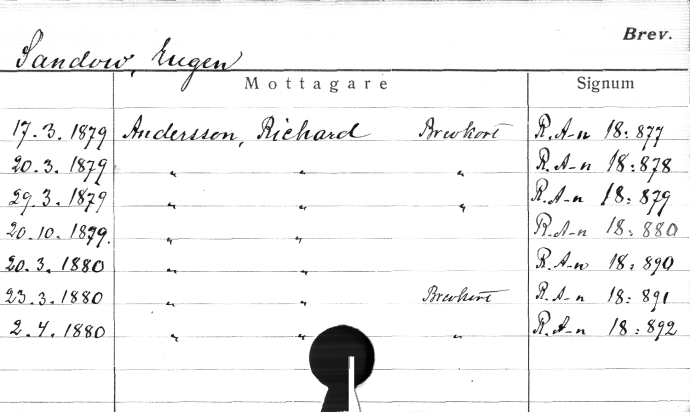 Brev.
Sandow, Eugen
Mottagare Signum
17.3.1879 Andersson, Richard Brevkort R.A-n 18:877
20.3.1879 " " " R.A-n 18:878
29.3.1879 " " " R.A-n 18:879
20.10.1879. " " R.A-n 18:880
20.3.1880 " " R.A-n 18:890
23.3.1880 " " Brevkort R.A-n 18:891
2.4.1880 " " " R.A-n 18:892